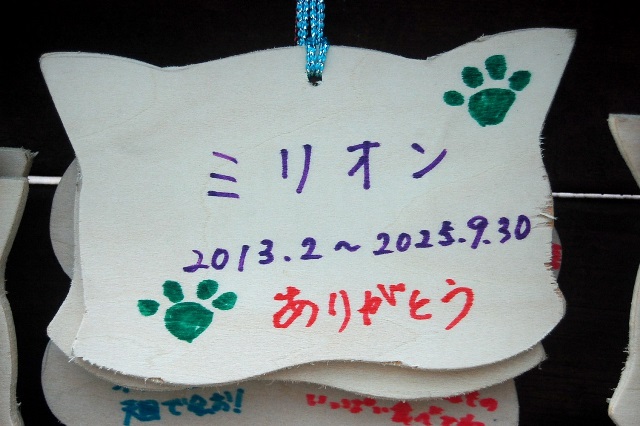 ミリオン
2013.2～2025.9.30
ありがとう
いっぱい